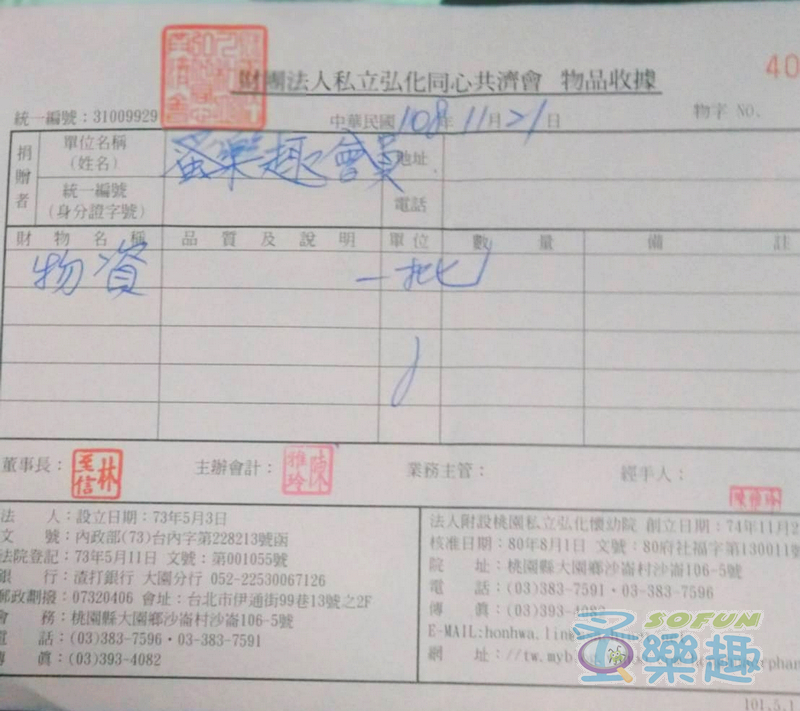 財團法人私立弘化同心共濟會 物品收據
40
統一編號：31009929
中華民國108年11月21日
物字 NO.
捐贈者
單位名稱
(姓名)
蚤樂趣會員
地址
統一編號
(身分證字號)
電話
財物名稱 品質及說明 單位 數量 備註
物資 一批
董事長：
林至信
主辦會計：
陳雅玲
業務主管：
經手人：
法人：設立日期：73年5月3日
文號：內政部(73)台內字第228213號函
法院登記：73年5月11日 文號：第001055號
銀行：渣打銀行 大園分行 052-22530067126
郵政劃撥：07320406 會址：台北市伊通街99巷13號之2F
會務：桃園縣大園鄉沙崙村沙崙106-5號
電話：(03)383-7596・03-383-7591
傳真：(03)393-4082
法人附設桃園私立弘化懷幼院 創立日期：74年11月2
核准日期：80年8月1日 文號：80府社福字第130011號
院址：桃園縣大園鄉沙崙村沙崙106-5號
電話：(03)383-7591・03-383-7596
傳真：(03)393-4082
E-MAIL:honhwa.lin@
網址：//tw.myb
SOFUN
蚤樂趣
101.5.1